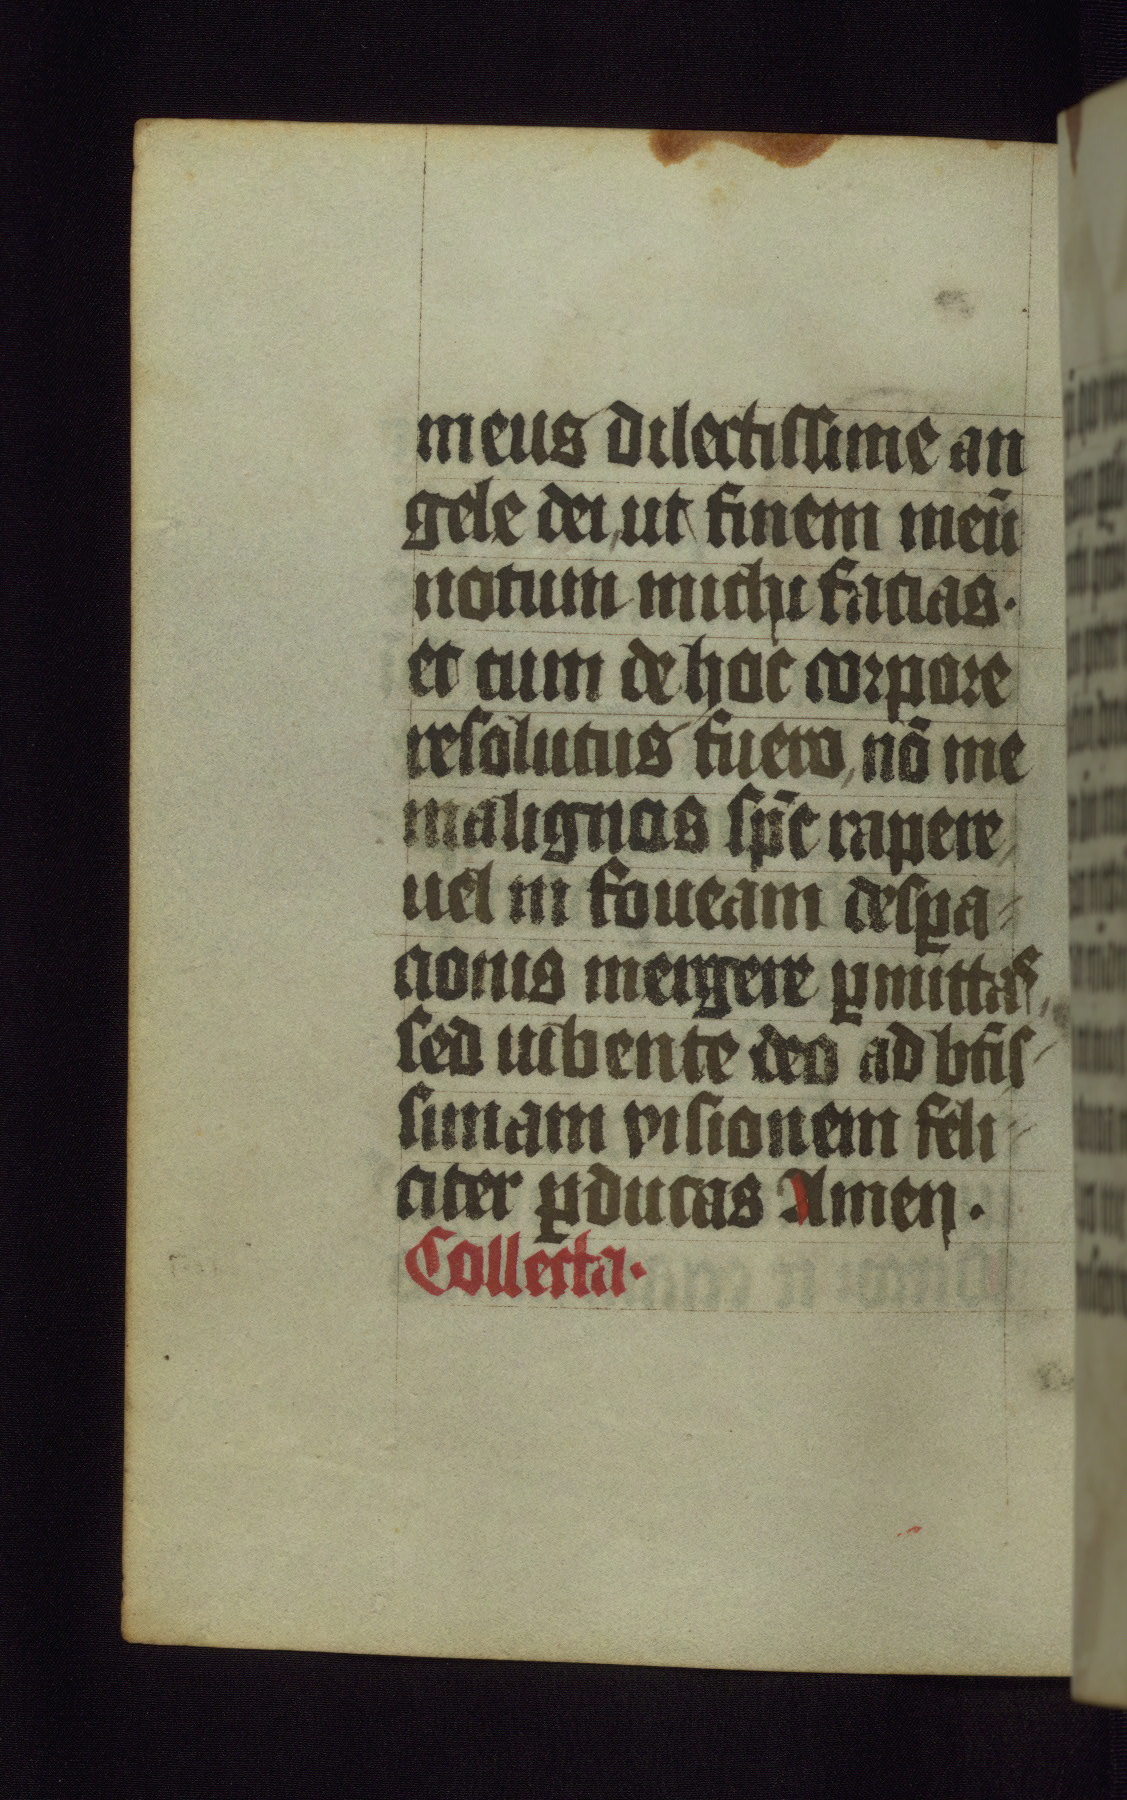 meus dilectissime an
gele dei, ut finem meū
notum michi facias.
et cum de hoc corpore
resolutus fuero, nō me
malignos sp̄c rapere,
uel in foueam despa
cionis mergere ꝑmittas,
sed iubente deo ad btis
simam visionem feli
citer ꝑducas Amen.
Collecta.